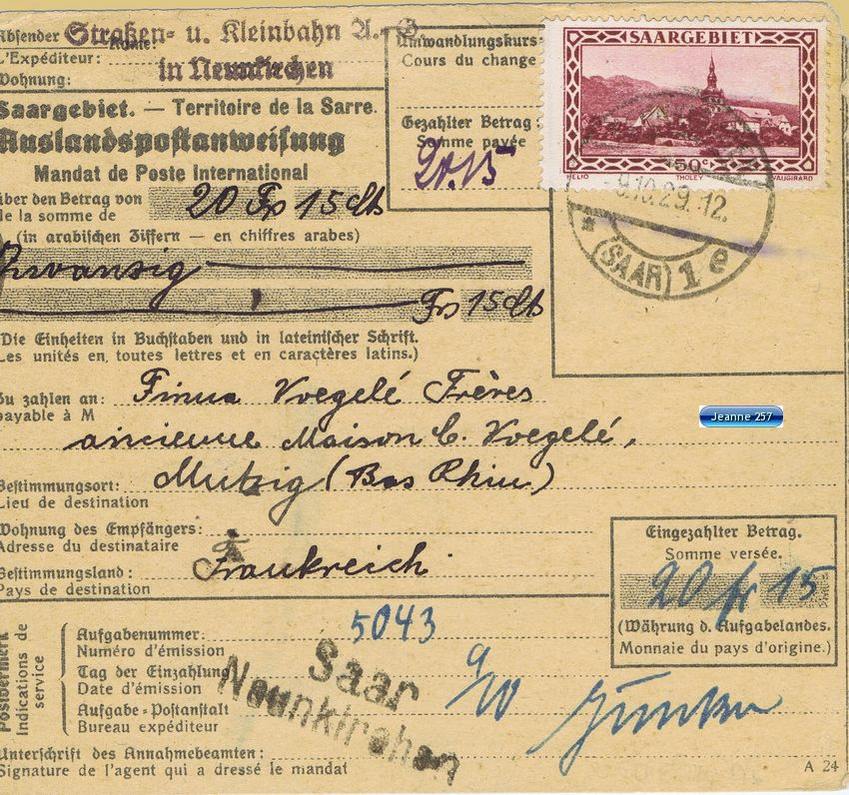 Absender Straßen- u. Kleinbahn A.-G
L'Expéditeur:
Wohnung: in Neunkirchen
Saargebiet. — Territoire de la Sarre.
Auslandspostanweisung
Mandat de Poste International
über den Betrag von
de la somme de
20 Frs 15 cts
(in arabischen Ziffern — en chiffres arabes)
Zwanzig
Frs 15 cts
(Die Einheiten in Buchstaben und in lateinischer Schrift.
Les unités en toutes lettres et en caractères latins.)
Zu zahlen an: Firma Voegelé Frères
payable à M
ancienne Maison C. Voegelé,
Mutzig (Bas Rhin)
Bestimmungsort:
Lieu de destination
Wohnung des Empfängers:
Adresse du destinataire
Bestimmungsland: Frankreich
Pays de destination
Umwandlungskurs:
Cours du change
Gezahlter Betrag:
Somme payée
20.15
SAARGEBIET
50 c
HELIO THOLEY VAUGIRARD
9.10.29. 12.
(SAAR) 1 e
Jeanne 257
Eingezahlter Betrag.
Somme versée.
20 fr 15
(Währung d. Aufgabelandes.
Monnaie du pays d'origine.)
Postvermerk
Indications de
service
Aufgabenummer: 5043
Numéro d'émission
Tag der Einzahlung 9/10
Date d'émission
Aufgabe-Postanstalt
Bureau expéditeur
Saar
Neunkirchen
Unterschrift des Annahmebeamten:
Signature de l'agent qui a dressé le mandat
A 24